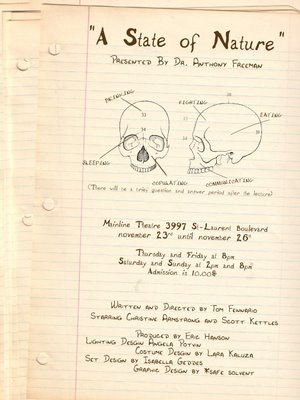 "A State of Nature"
Presented By Dr. Anthony Freeman
DRINKING
FIGHTING
EATING
SLEEPING
COPULATING
COMMUNICATING
(There will be a brief question and answer period after the lecture)
Mainline Theatre 3997 St-Laurent Boulevard
november 23rd until november 26th
Thursday and Friday at 8pm
Saturday and Sunday at 2pm and 8pm
Admission is 10.00$
Written and Directed by Tom Fennario
Starring Christine Armstrong and Scott Kettles
Produced by Eric Hanson
Lighting Design Angela Potvin
Costume Design by Lara Kaluza
Set Design by Isabella Geddes
Graphic Design by *safe solvent